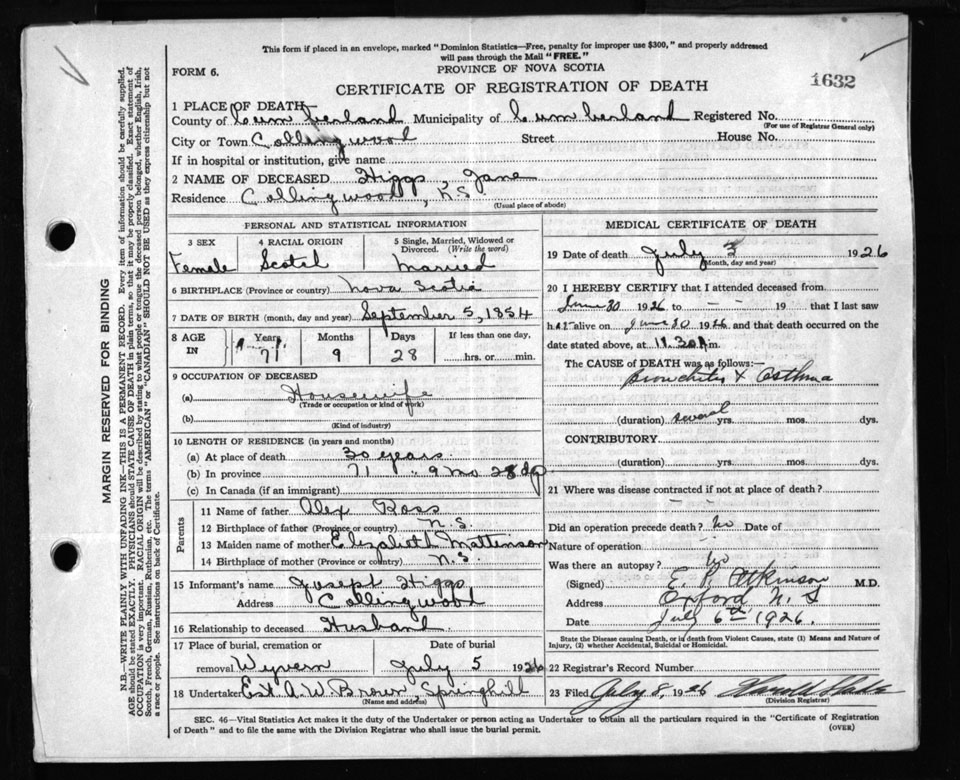 This form if placed in an envelope, marked "Dominion Statistics—Free, penalty for improper use $300," and properly addressed
will pass through the Mail "FREE."
FORM 6.
PROVINCE OF NOVA SCOTIA
1632
CERTIFICATE OF REGISTRATION OF DEATH
1 PLACE OF DEATH
County of Cumberland Municipality of Cumberland Registered No.
(For use of Registrar General only)
City or Town Collingwood Street House No.
If in hospital or institution, give name
2 NAME OF DECEASED Higgs, Jane
Residence Collingwood, N.S
(Usual place of abode)
PERSONAL AND STATISTICAL INFORMATION
3 SEX 4 RACIAL ORIGIN 5 Single, Married, Widowed or Divorced. (Write the word)
Female Scotch Married
6 BIRTHPLACE (Province or country) Nova Scotia
7 DATE OF BIRTH (month, day and year) September 5, 1854
8 AGE IN Years Months Days If less than one day,
71 9 28 hrs. or min.
9 OCCUPATION OF DECEASED
(a) Housewife
(Trade or occupation or kind of work)
(b)
(Kind of industry)
10 LENGTH OF RESIDENCE (in years and months)
(a) At place of death 30 years.
(b) In province 71 " 9 mo 28 dy
(c) In Canada (if an immigrant)
Parents
11 Name of father Alex Ross
12 Birthplace of father (Province or country) N.S.
13 Maiden name of mother Elizabeth Mattenson
14 Birthplace of mother (Province or country) N.S.
15 Informant's name Joseph Higgs
Address Collingwood
16 Relationship to deceased Husband
17 Place of burial, cremation or Date of burial
removal Wyvern July 5 1926
18 Undertaker Est. A. W. Brown, Springhill
(Name and address)
MEDICAL CERTIFICATE OF DEATH
19 Date of death July 3 1926
(Month, day and year)
20 I HEREBY CERTIFY that I attended deceased from
June 30 1926 to — — 19 — that I last saw
h er alive on June 30 1926 and that death occurred on the
date stated above, at 11.30 A m.
The CAUSE OF DEATH was as follows:—
Bronchitis & Asthma
(duration) several yrs. mos. dys.
CONTRIBUTORY
(duration) yrs. mos. dys.
21 Where was disease contracted if not at place of death?
Did an operation precede death? no Date of
Nature of operation
Was there an autopsy? no
(Signed) E. P. Atkinson M.D.
Address Oxford N. S
Date July 6th 1926.
State the Disease causing Death, or in death from Violent Causes, state (1) Means and Nature of
Injury, (2) whether Accidental, Suicidal or Homicidal.
22 Registrar's Record Number
23 Filed July 8, 1926
(Division Registrar)
SEC. 46—Vital Statistics Act makes it the duty of the Undertaker or person acting as Undertaker to obtain all the particulars required in the "Certificate of Registration
of Death" and to file the same with the Division Registrar who shall issue the burial permit.
(OVER)
MARGIN RESERVED FOR BINDING
N.B.—WRITE PLAINLY WITH UNFADING INK—THIS IS A PERMANENT RECORD. Every item of information should be carefully supplied.
AGE should be stated EXACTLY. PHYSICIANS should STATE CAUSE OF DEATH in plain terms, so that it may be properly classified. Exact statement of
OCCUPATION is very important. RACIAL ORIGIN will be described by stating to what people or tongue the deceased person belonged, whether English, Irish,
Scotch, French, German, Russian, Ruthenian, etc. The terms "AMERICAN" or "CANADIAN" SHOULD NOT BE USED as they express citizenship but not
a race or people. See instructions on back of Certificate.